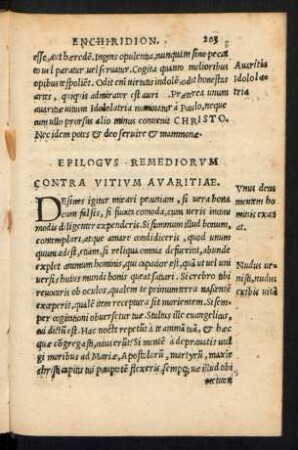 ENCHIRIDION. 203
esse, aut hærede. Ingens opulentia, nunquam sine peccato
uel paratur, uel seruatur. Cogita quanto melioribus
opibus te spoliet. Odit enim uirtutis indolē, odit honestas
artes, quisquis admiratur est auri. Præterea unum
Auaritia
Idololatria
auaritiæ uitium Idololatria nominatur à Paulo, neque
cum ullo prorsus alio minus conuenit CHRISTO.
Nec idem potes & deo seruire & mammonæ.
EPILOGVS REMEDIORVM
CONTRA VITIVM AVARITIAE.
DEsines igitur mirari pecuniam, si uera bona
cum falsis, si fucata comoda, cum ueris incommodis
diligenter expenderis. Si summum illud bonum,
contemplari, atque amare condidiceris, quod unum
quum adest, etiam, si reliqua omnia defuerint, abunde
explet animum hominis, qui capacior est, quā ut uel uniuersis
huius mundi bonis uleat satiari. Si crebro tibi
Vnus deus
mentem hominis
exatiat.
reuocaris ob oculos, qualem te primum terra nascentē
exceperit, qualē item receptura sit morientem. Si semper
cogitationi obuersetur tue Stultus ille euangelicus,
cui dictū est. Hac nocte repetūt à te animā tuā, & hæc
quæ cōgregasti, cuius erūt? Si mentē à deprauatis uulgi
moribus ad Mariæ, Apostolorū, martyrū, maxime
christi capitis tui paupertatē flexeris, semperque illud tibi
Nudus uenisti,
nudus
exibis uita